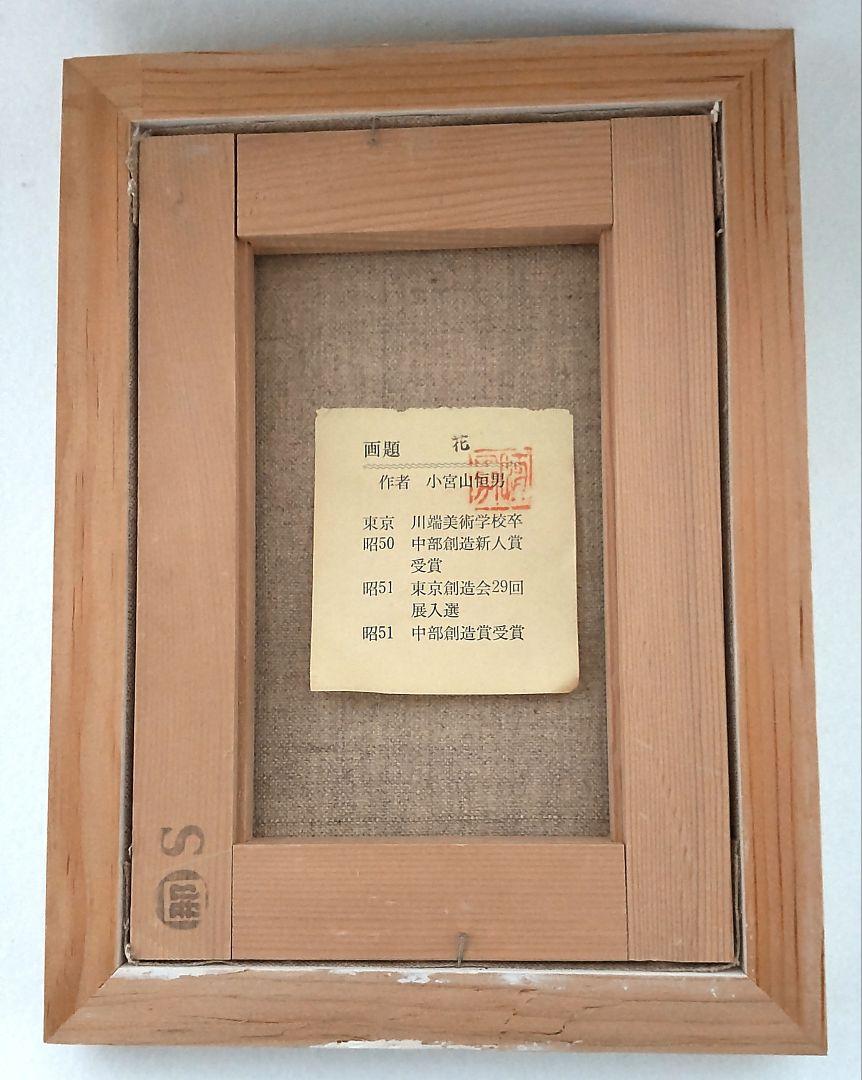 画題 花
作者 小宮山恒男
東京 川端美術学校卒
昭50 中部創造新人賞
受賞
昭51 東京創造会29回
展入選
昭51 中部創造賞受賞
S